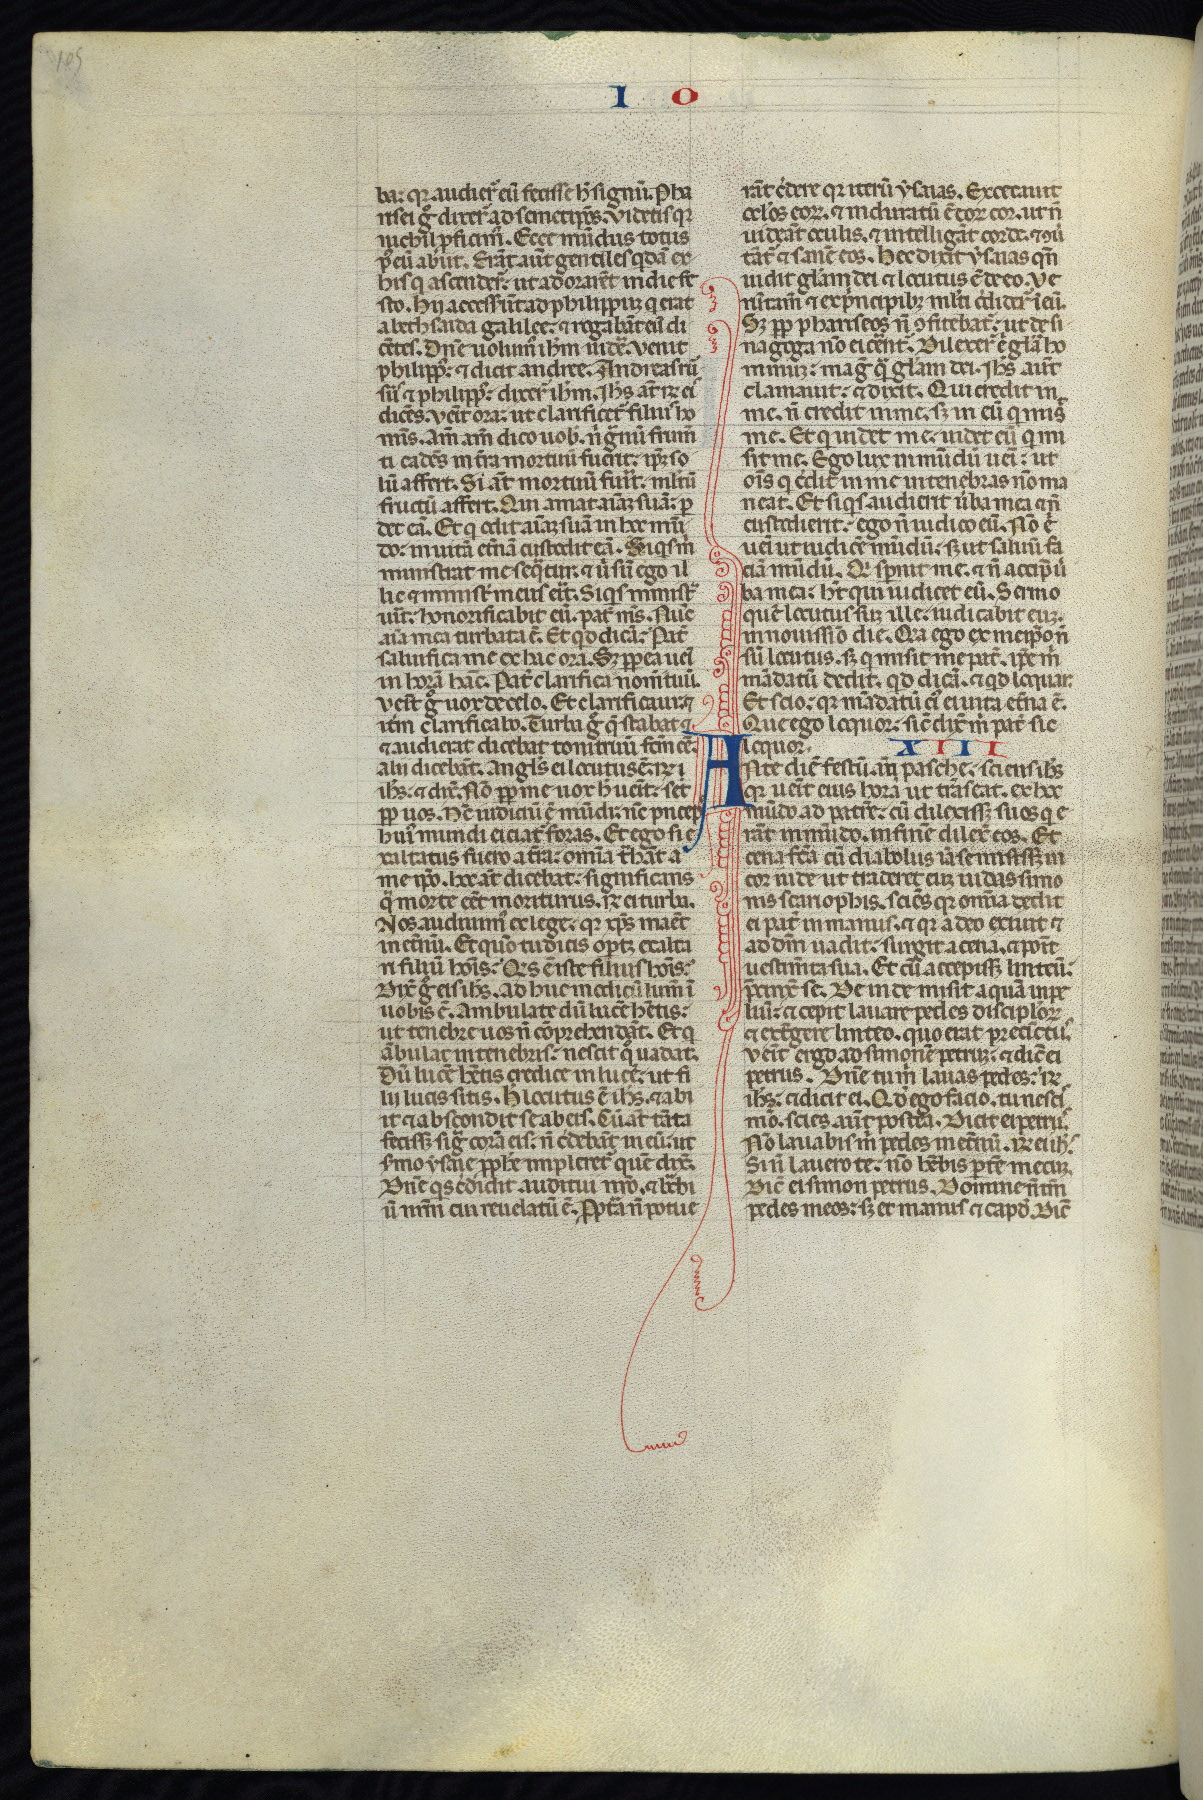 105
I O
ba: qr audier̄ eū fecisse h̄ signū. Pha
risei g̊ dixer̄ ad semetip̄os. Videtis qr
nichil ꝓficim᷒. Ecce mūdus totus
p̄ eū abiit. Erāt aūt gentiles qdā ex
his q ascender̄t ut adorarēt in die fe
sto. Hii accesserūt ad philippuꝫ q erat
a bethsaida galilee: ⁊ rogabāt eū di
cētes. Dn̄e uolum᷒ ih̄m uider̄. Venit
philipp᷒: ⁊ dicit andree. Andreas rursū
⁊ philipp᷒ dixer̄ ih̄m. Ih̄s at̄ rr̄ eī
dicēs. Venit ora: ut clarificet᷒ filiꝰ ho
minis. Am̄ am̄ dico uob̄. n̄ g̊nū frum̄
ti cadēs in t̄ra mortuū fuerit: ip̄ꝫ so
lū affert. Si at̄ mortuū fuerit: ml̄tū
fructū affert. Qui amat aīaꝫ suā: ꝑ
det eā. Et q odit aīaꝫ suā in hoc mū
do: in uitā et̄nā custodit eā. Siqs m̄
ministrat me seq̄tur: ⁊ ū sū ego il
lic ⁊ ministꝰ meus erit. Siqs m̄ minist᷒
uit: honorificabit eū pat̄ m̄s. Nūc
aīa mea turbata ē. Et qd dicā: Pat̄
saluifica me ex hac ora. Sꝫ pp̄ea uēi
in horā hāc. Pat̄ clarifica nom̄ tuū.
Venit g̊ uox de celo. Et clarificaui: ⁊
itm̄ clarificabo. Turba g̊ q̄ stabat
⁊ audierat dicebat tonitruū fc̄m eē.
alii dicebāt. Angl̄s ei locutus ē. rr̄
ih̄s: ⁊ dix̄. Nō pp̄ me uox h̄ uenit: set
pp̄ uos. Nūc iudiciū ē mūdi: nūc princeps
huiꝰ mundi eiciat᷒ foras. Et ego si e
xaltatus fuero a t̄ra: omīa t̄hāt a
me ip̄o. hoc at̄ dicebat: significans
q̄ morte eēt moriturus. rr̄ ei turba.
Nos audiuim᷒ ex lege: qr xp̄s maēt
in et̄nū. Et quō tu dicis oportꝫ exalta
ri filiū hoīs: Qis ē iste filius hoīs:
Dix̄ g̊ eis ih̄s. Adhuc modicū lum̄ ī
uobis ē. Ambulate dū lucē hētis:
ut tenebre uos n̄ cōprehendāt. Et q
ābulat in tenebris: nescit q̊ uadat.
Dū lucē hētis credite in lucē: ut fi
lii lucis sitis. H̄ locutus ē ih̄s: ⁊ abi
it ⁊ abscondit se ab eis. Cū at̄ tāta
fecissꝫ sig̊ corā eis: n̄ c̄debāt in eū: ut
ẜmo ysaie ꝓph̄e impleret᷒ quē dix̄.
Dn̄e qis c̄didit auditui nr̄o. ⁊ bc̄hi
ū dn̄i cui reuelatū ē. Ppt̄ea n̄ potue
rāt c̄dere qr iterū dix̄ ysaias. Excecauit
oclōs eoꝝ. ⁊ indurauit eoꝝ cor. ut n̄
uideāt oculis. ⁊ intelligāt corde. ⁊ ꝯū
tāt᷒ ⁊ sanē eos. Hec dixit ysaias qn̄
uidit glām dei ⁊ locutus ē de eo. Ve
rūtam̄ ⁊ ex p̄ncipibꝫ ml̄ti c̄dider̄ ī eū.
Sꝫ pp̄ phariseos n̄ ꝯfitebāt᷒. ut de si
nagoga nō eicerēt᷒. Dilexer̄ ē glām ho
minuꝫ: mag̊ q̄ glām dei. Ih̄s aūt
clamauit: ⁊ dixit. Qui credit in
me. n̄ credit in me. sꝫ in eū q misit
me. Et q uidet me: uidet eū q mi
sit me. Ego lux in mūdū uēi: ut
oīs q c̄dit in me in tenebras nō ma
neat. Et siqs audierit ūba mea ⁊ n̄
custodierit: ego n̄ iudico eū. Nō ē
uēi ut iudicē mūdū. sꝫ ut saluū fa
ciā mūdū. Q̇ sp̄nit me. ⁊ n̄ accip̄ ū
ba mea: ht̄ qui iudicet eū. Sermo
quē locutus suꝫ ille iudicabit euꝫ
in nouissīo die. Qia ego ex meip̄o n̄
sū locutus. sꝫ q misit me pat̄. ip̄e m̄
mādatū dedit. qd dicā. ⁊ qd loquar.
Et scio: qr mādatū eiꝰ uita et̄na ē.
Que ego loquor: sic̄ dix̄ m̄ pat̄ sic
loquor. XIII
Ante diē festū pasche. sciens ih̄s
qr uenit eius hora ut trāseat. ex hoc
mūdo ad patrē: cū dilexissꝫ suos q e
rāt in mūdo. in finē dilex̄ eos. Et
cena fc̄a cū diabolus iā se misissꝫ in
cor iude ut traderet euꝫ iudas simo
nis scariothis. sciēs qr omīa dedit
ei pat̄ in manus. ⁊ qr a deo exiuit ⁊
ad dm̄ uadit: surgit a cena. ⁊ ponit
uestim̄ta sua. Et cū accepissꝫ linteū:
p̄cinx̄ se. Deinde misit aquā in pe
luī: ⁊ cepit lauare pedes discip̄loꝝ
⁊ ext̄gere linteo. quo erat precinctꝰ.
Venit ergo ad simonē petruꝫ: ⁊ dic̄ ei
petrus. Dn̄e tu m̄ lauas pedes: rr̄
ih̄s: ⁊ dicit ei. Qd ego facio. tu nescis
mō. scies aūt postea. Dicit ei petrꝰ.
Nō lauabis m̄ pedes in et̄nū. rr̄ ei ih̄s.
Si n̄ lauero te: nō hēbis partē mecuꝫ.
Dic̄ ei simon petrus. Domine n̄ tm̄
pedes meos: sꝫ et manus ⁊ capd. Dic̄